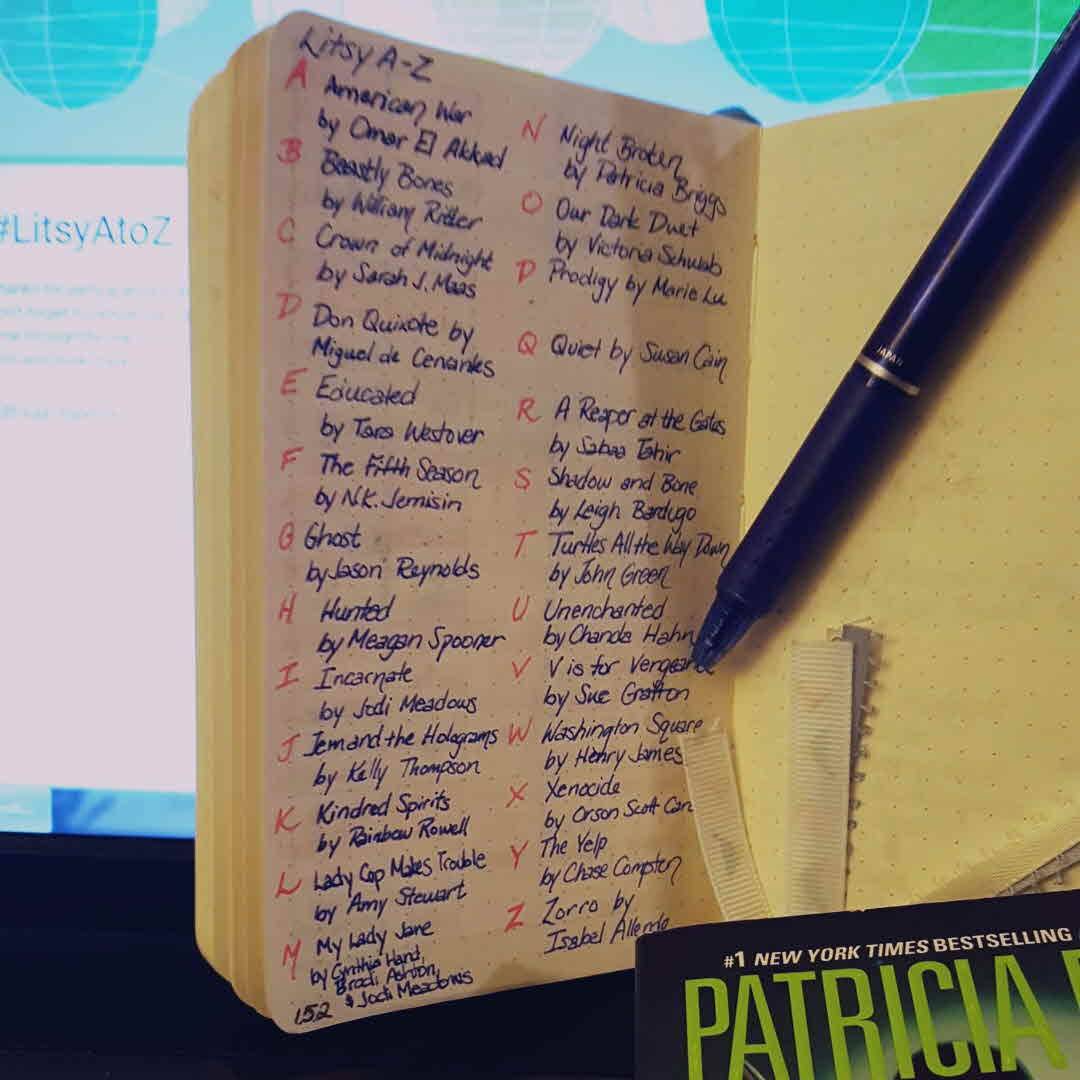 #LitsyAtoZ
Litsy A-Z
A American War
by Omar El Akkad
B Beastly Bones
by William Ritter
C Crown of Midnight
by Sarah J. Maas
D Don Quixote by
Miguel de Cervantes
E Educated
by Tara Westover
F The Fifth Season
by N.K. Jemisin
G Ghost
by Jason Reynolds
H Hunted
by Meagan Spooner
I Incarnate
by Jodi Meadows
J Jem and the Holograms
by Kelly Thompson
K Kindred Spirits
by Rainbow Rowell
L Lady Cop Makes Trouble
by Amy Stewart
M My Lady Jane
by Cynthia Hand,
Brodi Ashton,
& Jodi Meadows
152
N Night Broken
by Patricia Briggs
O Our Dark Duet
by Victoria Schwab
P Prodigy by Marie Lu
Q Quiet by Susan Cain
R A Reaper at the Gates
by Sabaa Tahir
S Shadow and Bone
by Leigh Bardugo
T Turtles All the Way Down
by John Green
U Unenchanted
by Chanda Hahn
V V is for Vengeance
by Sue Grafton
W Washington Square
by Henry James
X Xenocide
by Orson Scott Card
Y The Yelp
by Chase Compton
Z Zorro by
Isabel Allende
JAPAN
#1 NEW YORK TIMES BESTSELLING
PATRICIA